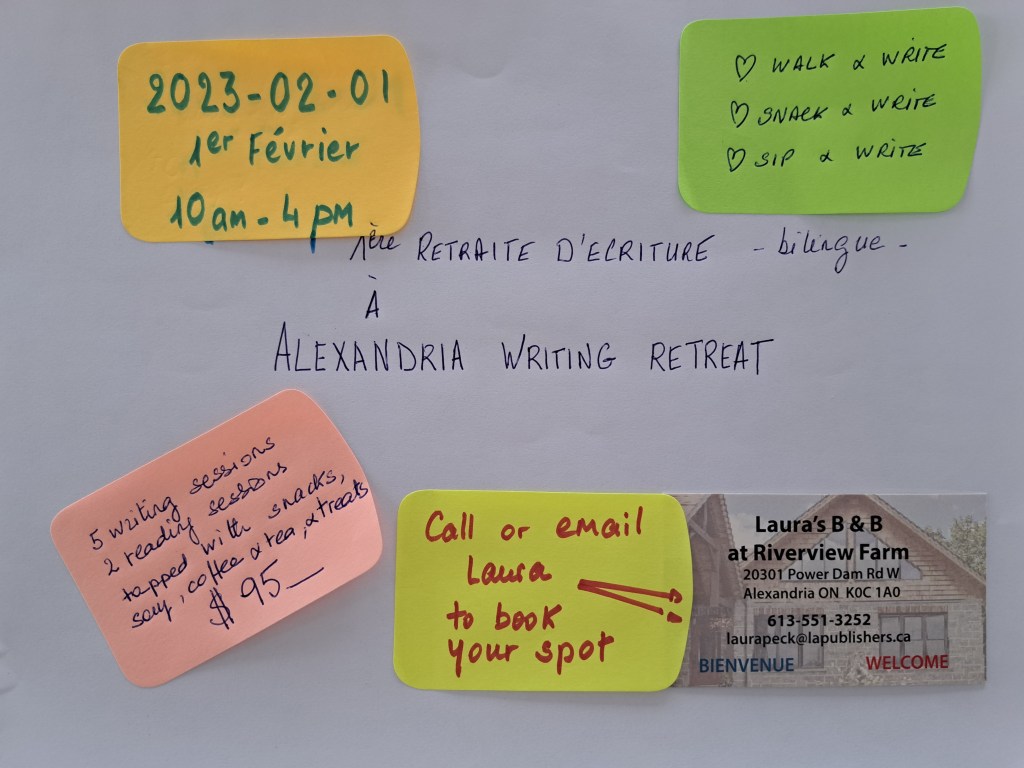 2023-02-01
1er Février
10am-4pm
♡ WALK & WRITE
♡ SNACK & WRITE
♡ SIP & WRITE
1ère RETRAITE D'ECRITURE - bilingue -
À
ALEXANDRIA WRITING RETREAT
5 writing sessions
2 reading sessions
tapped with snacks,
soup, coffee & tea, & treats
$95—
Call or email
Laura
to book
your spot
Laura's B & B
at Riverview Farm
20301 Power Dam Rd W
Alexandria ON K0C 1A0
613-551-3252
laurapeck@lapublishers.ca
BIENVENUE WELCOME